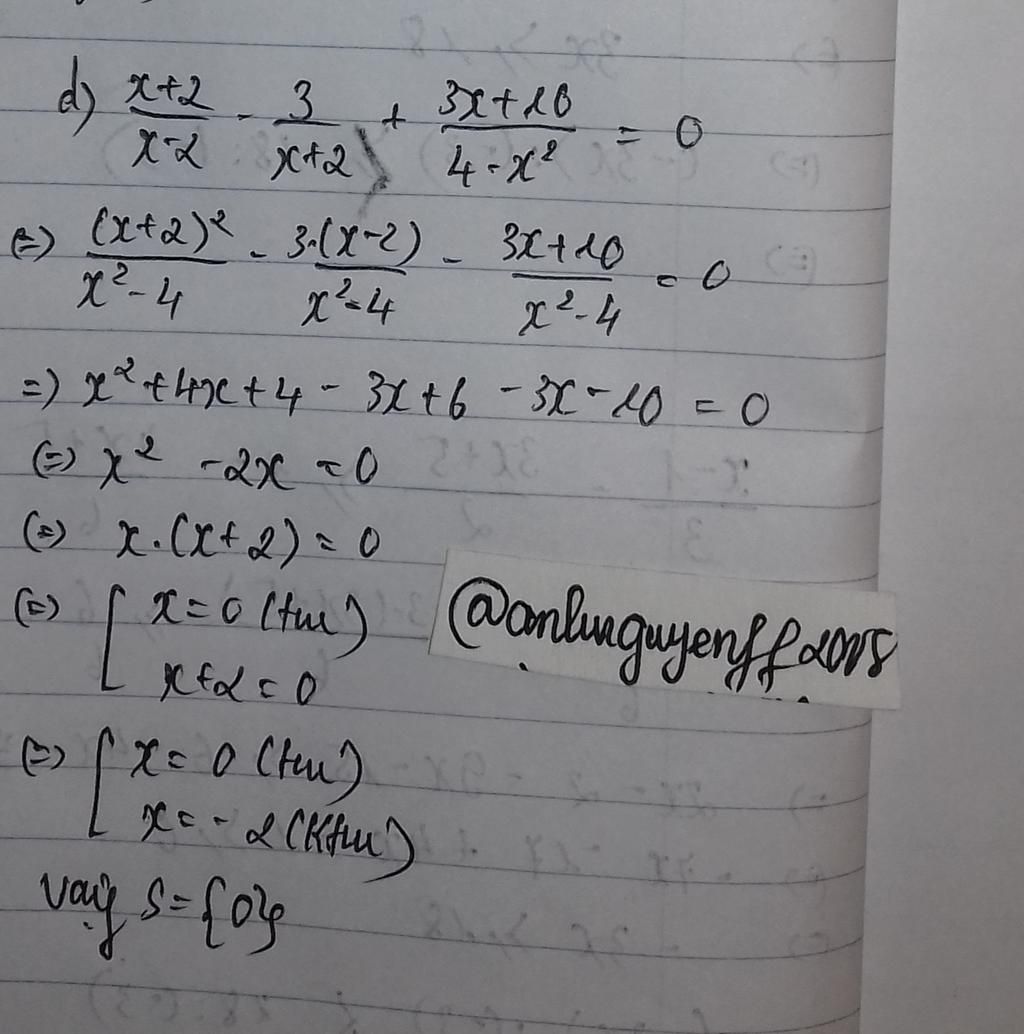 d) (x+2)/(x-2) - 3/(x+2) + (3x+10)/(4-x²) = 0
(=) (x+2)²/(x²-4) - 3.(x-2)/(x²-4) - (3x+10)/(x²-4) = 0
=) x²+4x+4 - 3x+6 - 3x-10 = 0
(=) x² - 2x = 0
(=) x.(x+2) = 0
(=) [ x=0 (tm)
x+2=0
@anhnguyenff2008
(=) [ x=0 (tm)
x=-2 (Ktm)
vậy S={0}